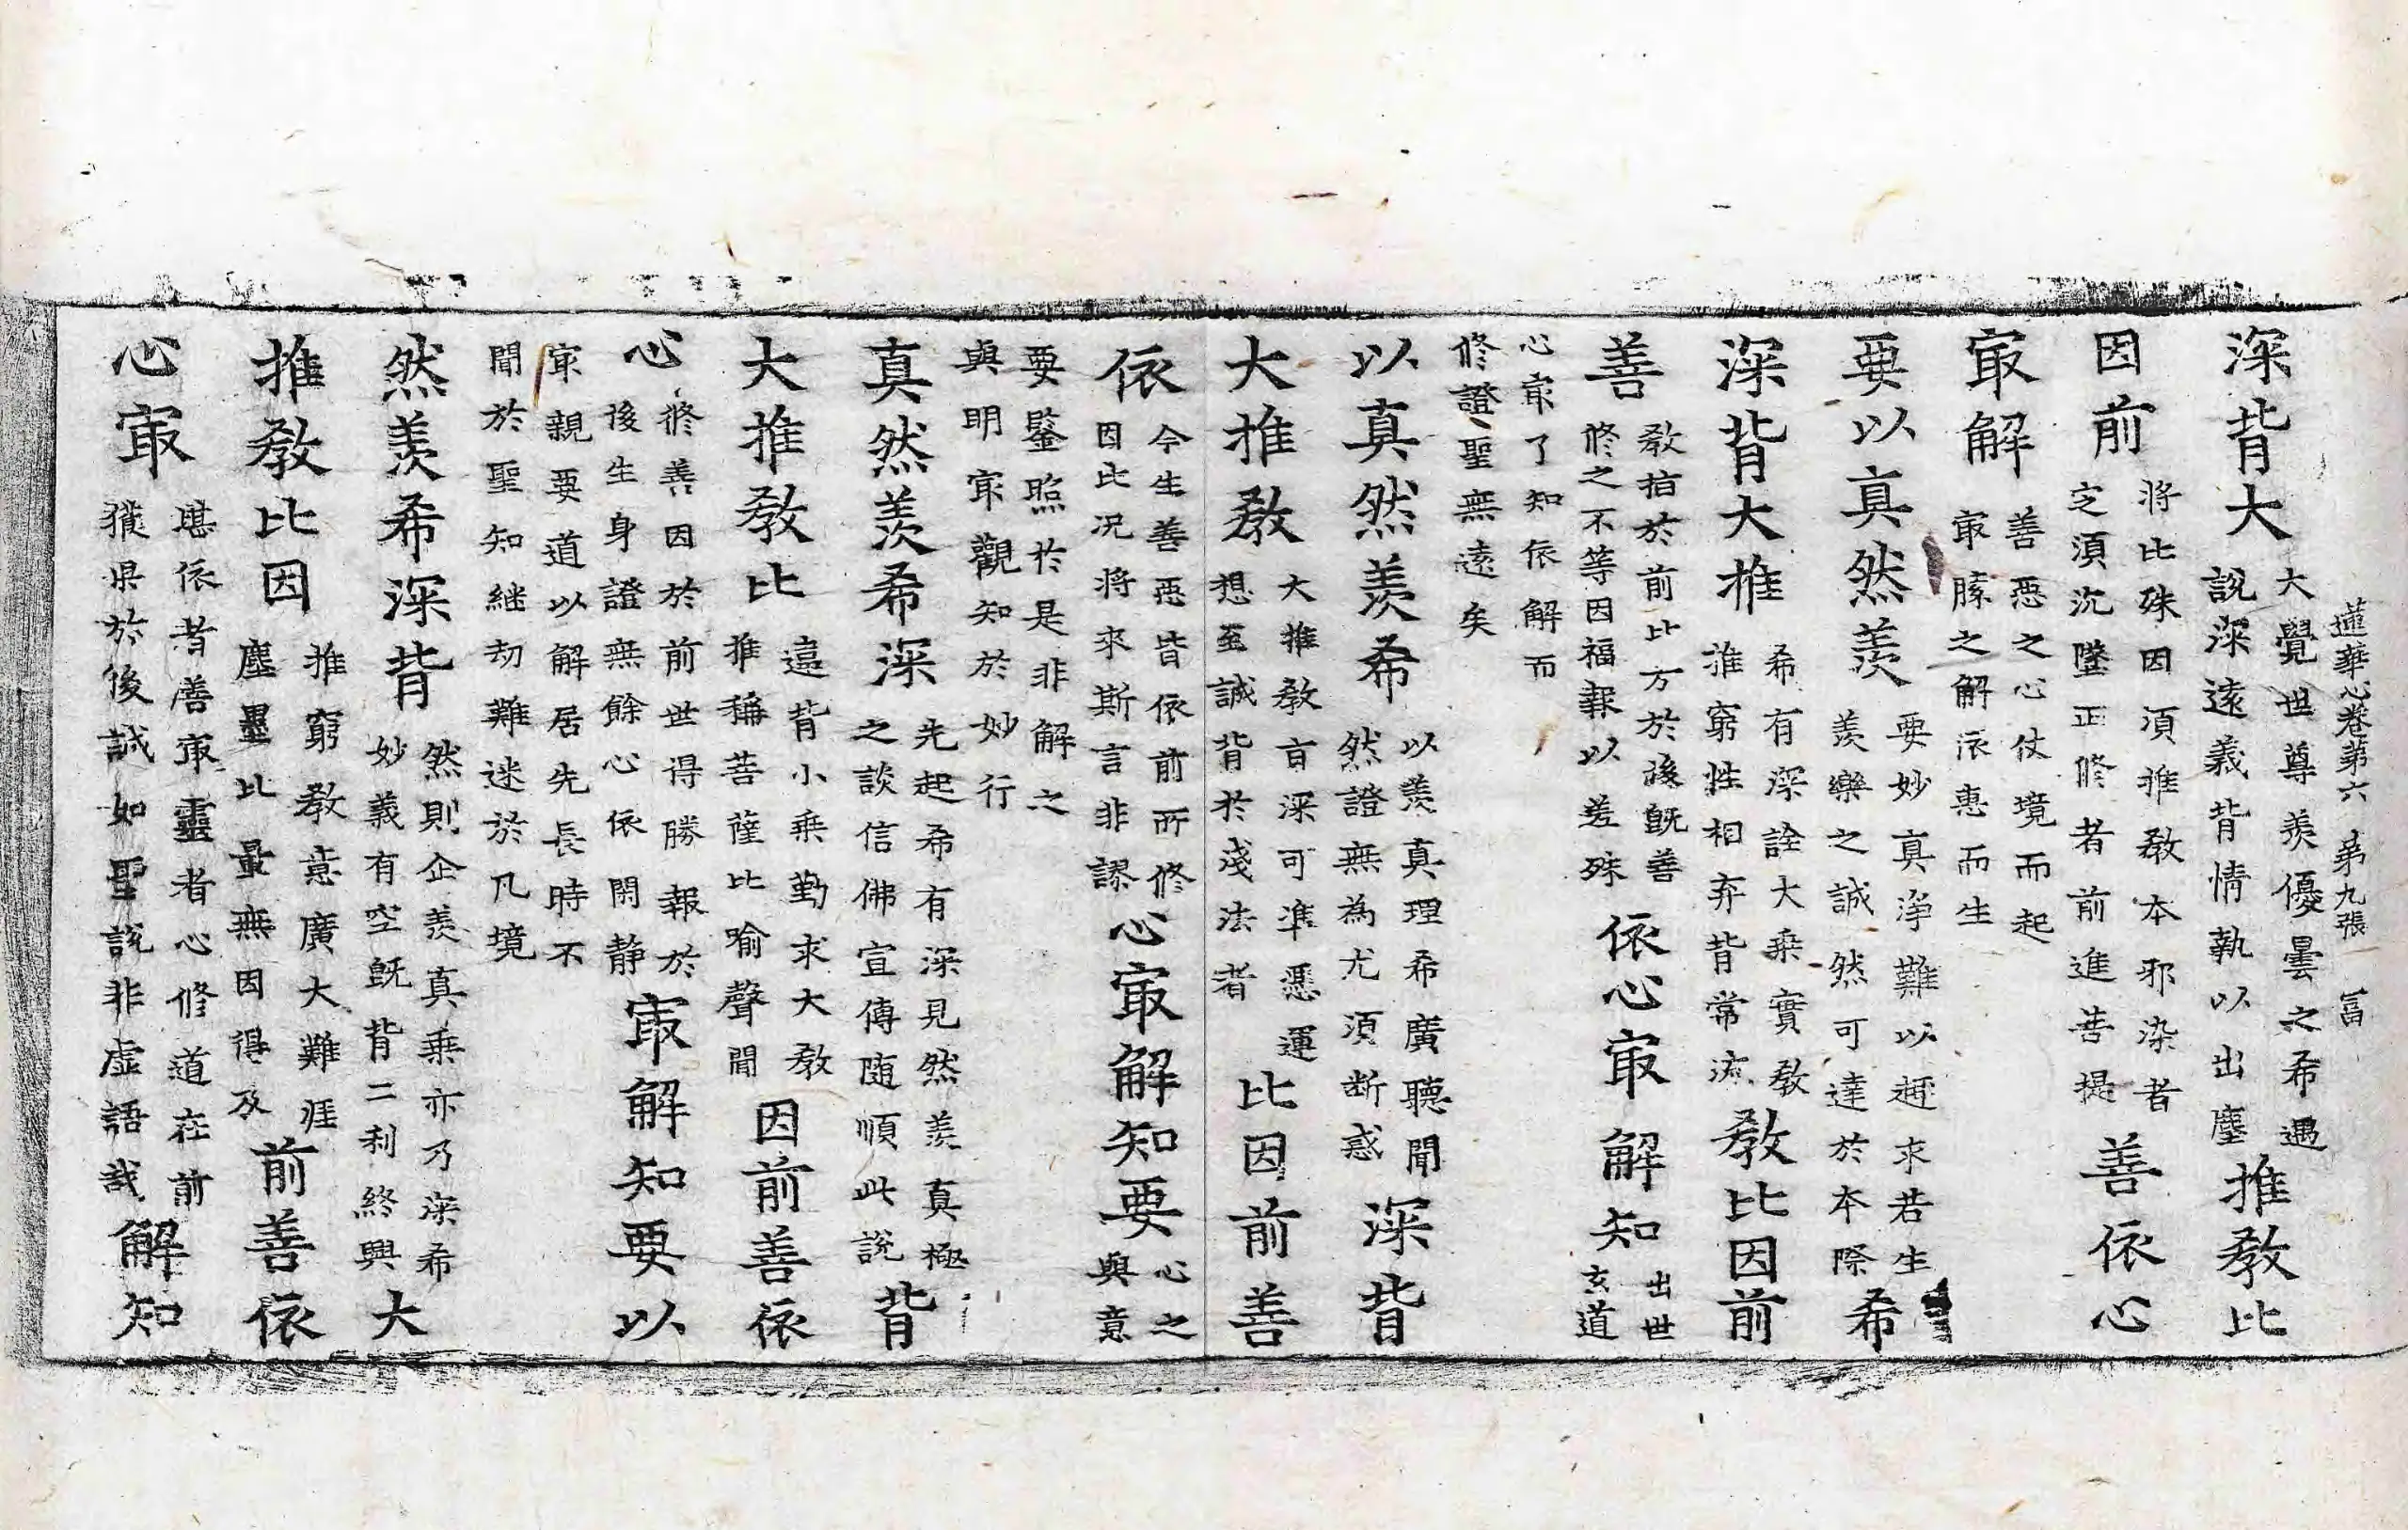 蓮華心卷第六 第九張 冨
深背大
大覺世尊羨優曇之希遇
說深遠義背情執以出塵
推教比
因前
將比殊因須推教本邪染者
定須沉墜正修者前進菩提
善依心
㝡解
善惡之心仗境而起
㝡勝之解依惠而生
要以真然羨
要妙真淨難以趣求若生
羨樂之誠然可達於本際
希
深背大推
希有深詮大乘實教
推窮性相弃背常流
教比因前
善
教指於前比方於後既善
修之不等因福報以差殊
依心㝡解知
出世
玄道
心㝡了知依解而
修證聖無遠矣
以真然羨希
以羨真理希廣聽聞
然證無為尤須断惑
深背
大推教
大推教旨深可準憑運
想至誠背於淺法者
比因前善
依
今生善惡皆依前所修
因比况將來斯言非謬
心㝡解知要
心之
與意
要鑒照於是非解之
與明㝡觀知於妙行
真然羨希深
先起希有深見然羨真極
之談信佛宣傳随順此說
背
大推教比
遠背小乘勤求大教
推稱菩薩比喻聲聞
因前善依
心
修善因於前世得勝報於
後生身證無餘心依閑静
㝡解知要以
㝡親要道以解居先長時不
聞於聖知継劫難迷於凡境
然羨希深背
然則企羨真乘亦乃深希
妙義有空既背二利終興
大
推教比因
推窮教意廣大難涯
塵墨比量無因得及
前善依
心㝡
堪依者善㝡靈者心修道在前
獲果於後誠如聖說非虛語哉
解知